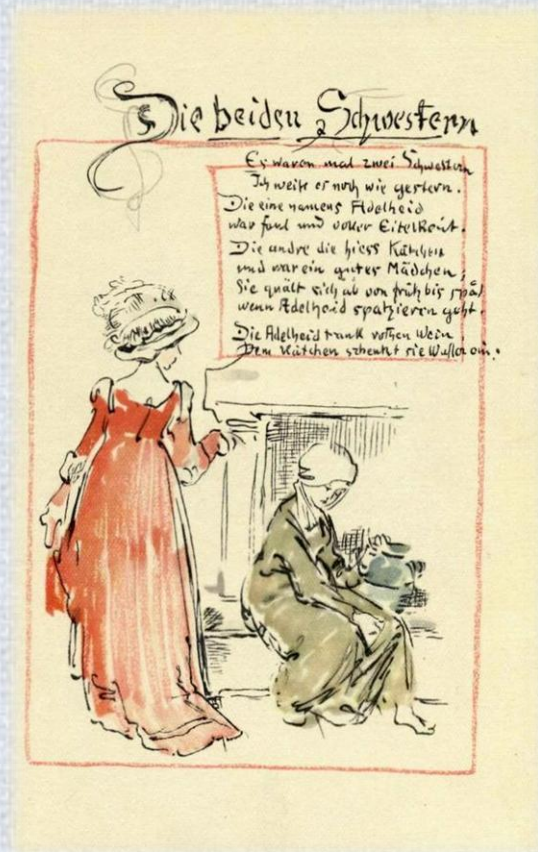 Die beiden Schwestern
Es waren mal zwei Schwestern
Ich weiß es noch wie gestern.
Die eine namens Adelheid
war faul und voller Eitelkeit.
Die andre die hiess Kätchen
und war ein gutes Mädchen,
Sie quält sich ab von früh bis spät
wenn Adelheid spatzieren geht.
Die Adelheid trank rothen Wein,
Dem Kätchen schenkt sie Wasser ein.